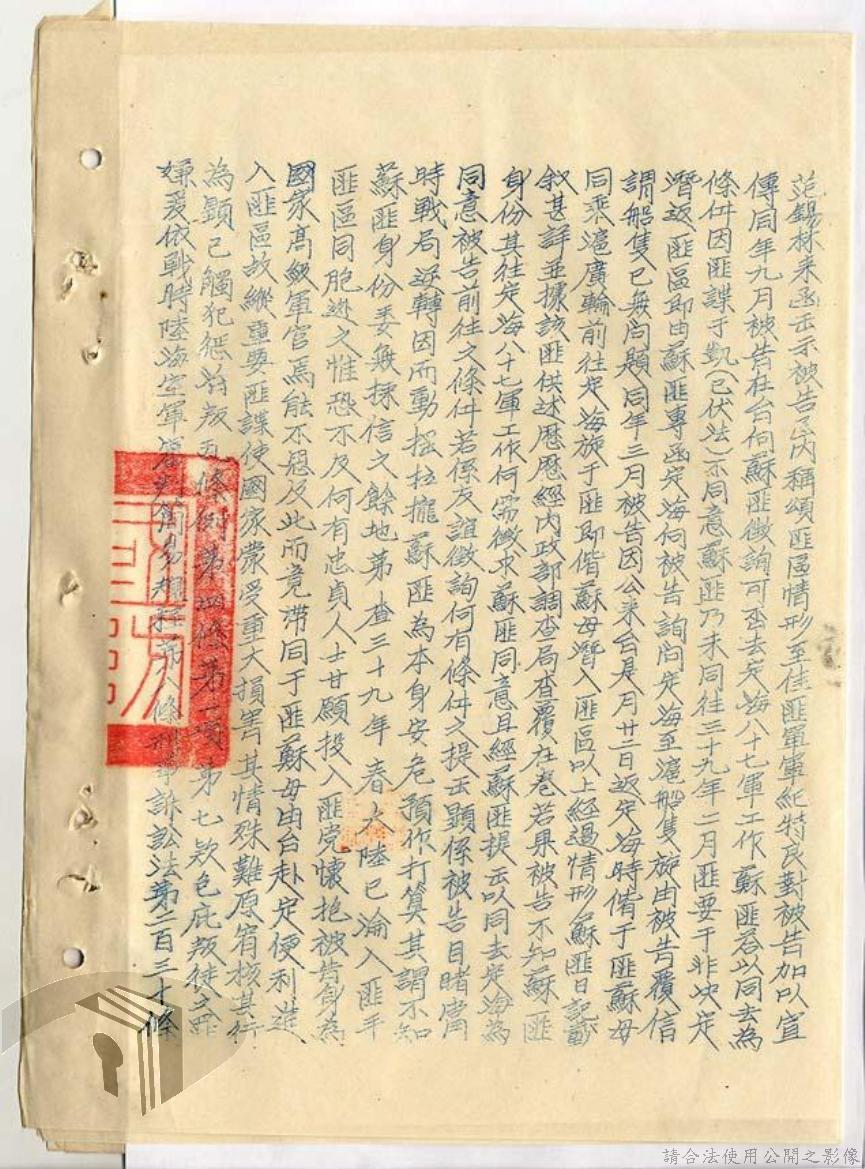 范錫林来函云示被告函內稱頌匪區情形至佳匪軍軍紀特良對被告加以宣
傳同年九月被告在台向蘇匪徵詢可否去定海八十七軍工作蘇匪答以同去為
條件因匪諜于凱(已伏法)不同意蘇匪乃未同往三十九年二月匪要于非決定
潛返匪區即由蘇匪專函定海向被告詢問定海至滬船隻旋由被告覆信
謂船隻已無問題同年三月被告因公來台是月廿二日返定海時偕于匪蘇母
同乘滬廣輪前往定海旋于匪即偕蘇母潛入匪區以上經過情形蘇匪日記載
叙甚詳並據該匪供述歷歷經內政部調查局查覆在卷若果被告不知蘇匪
身份其往定海八十七軍工作何需徵求蘇匪同意且經蘇匪提云以同去定海為
同意被告前往之條件若係友誼徵詢何有條件之提云顯係被告目睹當
時戰局逆轉因而動搖拉攏蘇匪為本身安危預作打算其謂不知
蘇匪身份委無採信之餘地第查三十九年春大陸已淪入匪手
匪區同胞逃之惟恐不及何有忠貞人士甘願投入匪党懷抱被告身為
國家高級軍官焉能不慮及此而竟帶同于匪蘇母由台赴定便利進
入匪區故縱重要匪諜使國家蒙受重大損害其情殊難原宥核其行
為顯已觸犯懲治叛亂條例第四條第一項第七款包庇叛徒之罪
嫌爰依戰時陸海空軍審判簡易規程第八條刑事訴訟法第二百三十條
請合法使用公開之影像